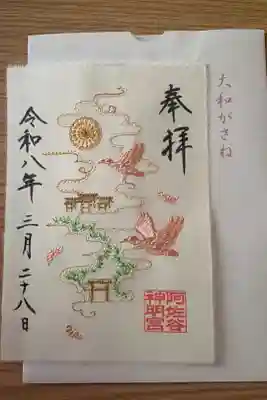 奉拝
令和八年 三月二十八日
阿佐谷
神明宮
大和がさね